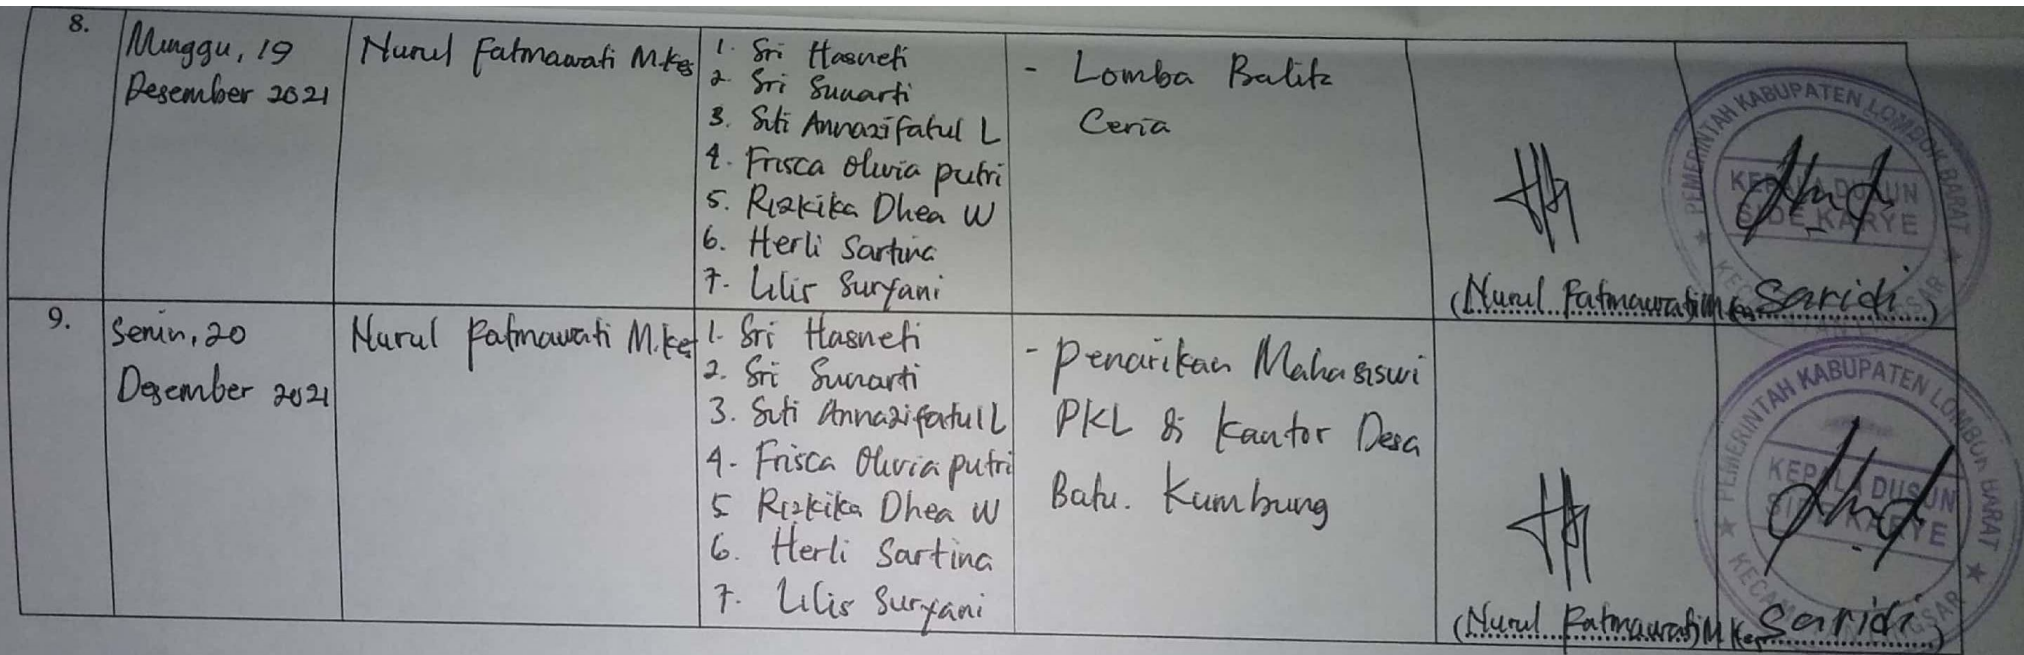 8.
Minggu, 19
Desember 2021
Nurul Fatmawati M.kes
1. Sri Hasneti
2. Sri Sunarti
3. Siti Annazifatul L
4. Frisca Olivia putri
5. Rizkika Dhea W
6. Herli Sartina
7. Lilis Suryani
- Lomba Balita
Ceria
PEMERINTAH KABUPATEN LOMBOK BARAT
KEPALA DUSUN
SIDE KARYE
(Nurul Fatmawati M.Kes)
Saridi)
9.
Senin, 20
Desember 2021
Nurul Fatmawati M.kes
1. Sri Hasneti
2. Sri Sunarti
3. Siti Annazifatul L
4. Frisca Olivia putri
5 Rizkika Dhea W
6. Herli Sartina
7. Lilis Suryani
- Penarikan Mahasiswi
PKL di Kantor Desa
Batu. Kumbung
PEMERINTAH KABUPATEN LOMBOK BARAT
KEPALA DUSUN
SIDE KARYE
(Nurul Fatmawati M.Kes)
Saridi)